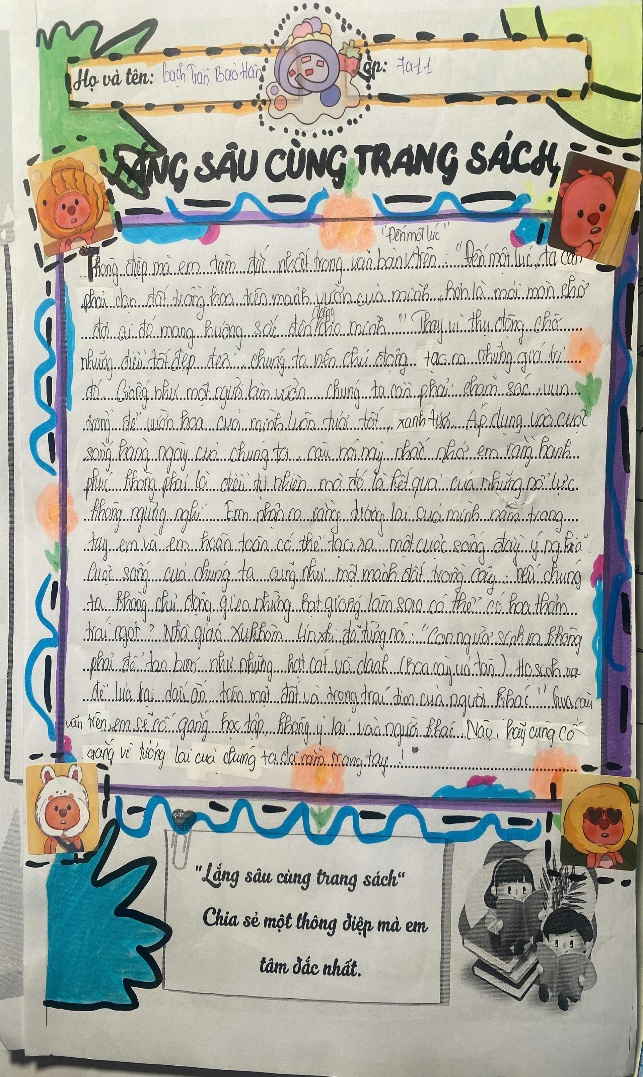 Họ và tên: Bạch Trần Bảo Hân Lớp: 7a11
LẮNG SÂU CÙNG TRANG SÁCH
"Đến một lúc"
Thông điệp mà em tâm đắc nhất trong văn bản trên: "Đến một lúc, ta cần
phải dẫn dắt trồng hoa trên mảnh vườn của mình, hơn là mỏi mòn chờ
đợi ai đó mang hương sắc đến cho mình". Thay vì thụ động chờ
những điều tốt đẹp đến, chúng ta nên chủ động tạo ra những giá trị
đó. Giống như một người làm vườn, chúng ta cần phải chăm sóc, vun
trồng để vườn hoa của mình luôn tươi tốt, xanh tươi. Áp dụng vào cuộc
sống hàng ngày của chúng ta, câu nói này nhắc nhở em rằng hạnh
phúc không phải là điều tự nhiên mà đó là kết quả của những nỗ lực
không ngừng nghỉ. Em nhận ra rằng tương lai của mình nằm trong
tay em và em hoàn toàn có thể tạo ra một cuộc sống đầy ý nghĩa
Cuộc sống của chúng ta cũng như một mảnh đất trồng cây, nếu chúng
ta không chủ động gieo những hạt giống làm sao có thể có hoa thơm
trái ngọt? Nhà giáo Xukhômlinxki đã từng nói: "Con người sinh ra không
phải để tan biến như những hạt cát vô danh Họ sinh ra
để lưu lại dấu ấn trên mặt đất và trong trái tim của người khác". Qua câu
văn trên, em sẽ cố gắng học tập, không ỷ lại vào người khác. Nào, hãy cùng cố
gắng vì tương lai của chúng ta đã nằm trong tay!
"Lắng sâu cùng trang sách"
Chia sẻ một thông điệp mà em
tâm đắc nhất.